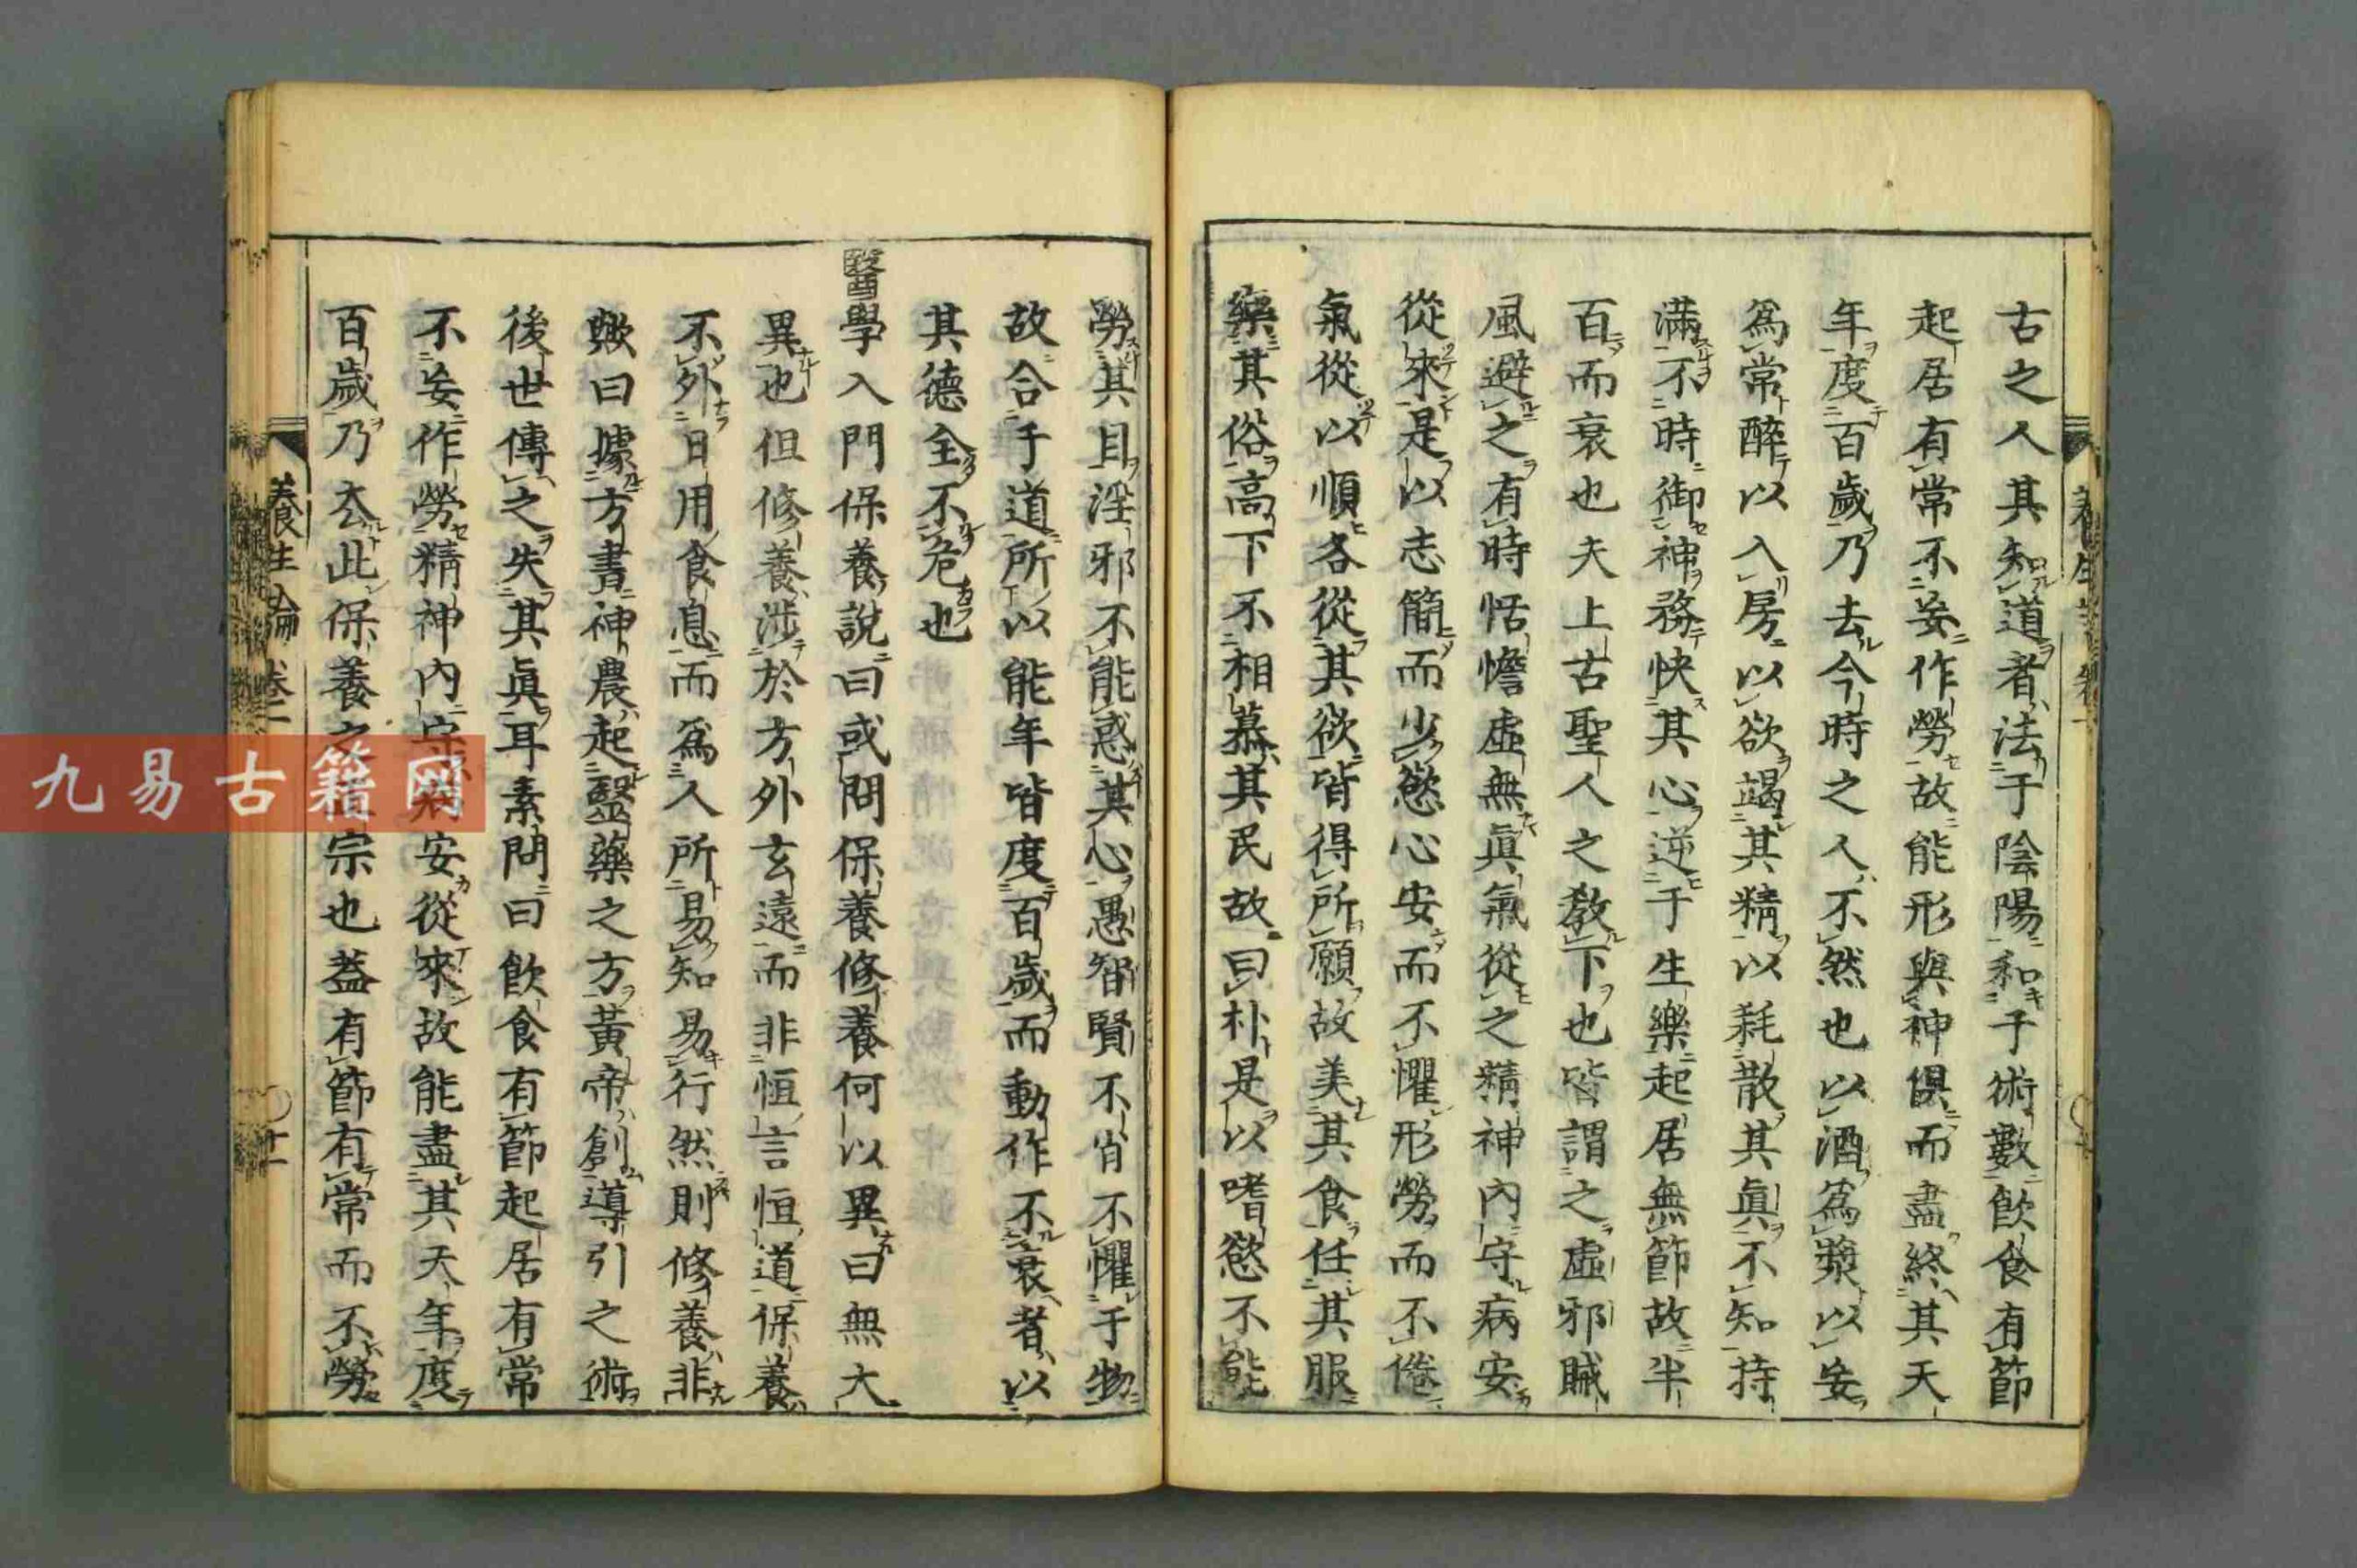 古之人其知道者法于陰陽和于術數飲食有節
起居有常不妄作勞故能形與神俱而盡終其天
年度百歲乃去今時之人不然也以酒爲漿以妄
爲常醉以入房以欲竭其精以耗散其眞不知持
滿不時御神務快其心逆于生樂起居無節故半
百而衰也夫上古聖人之教下也皆謂之虛邪賊
風避之有時恬憺虛無眞氣從之精神內守病安
從來是以志簡而少慾心安而不懼形勞而不倦
氣從以順各從其欲皆得所願故美其食任其服
樂其俗高下不相慕其民故曰朴是以嗜慾不能
勞其目淫邪不能惑其心愚智賢不肖不懼于物
故合于道所以能年皆度百歲而動作不衰者以
其德全不危也
醫學入門保養說曰或問保養修養何以異曰無大
異也但修養涉於方外玄遠而非恒言恒道保養
不外日用食息而爲人所易知易行然則修養非
歟曰據方書神農起醫藥之方黃帝創導引之術
後世傳之失其眞耳素問曰飲食有節起居有常
不妄作勞精神內守病安從來故能盡其天年度
百歲乃去此保養之宗也蓋有節有常而不勞
養生論 卷二
九易古籍网